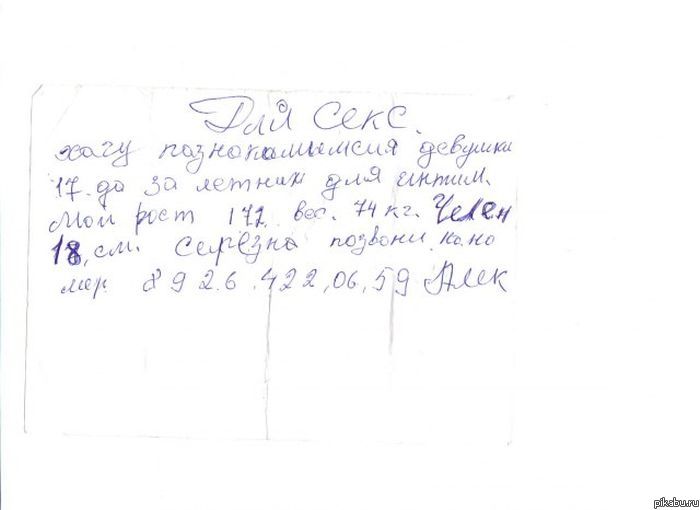 Для секс.
хачу познокамымсия девушки
17. до 30 летних для интим.
Мой рост 172 вес. 74 кг. Челен
18, см. Серёзна позвони. на но
мер 8 92.6.422,06,59 Алек
pikabu.ru